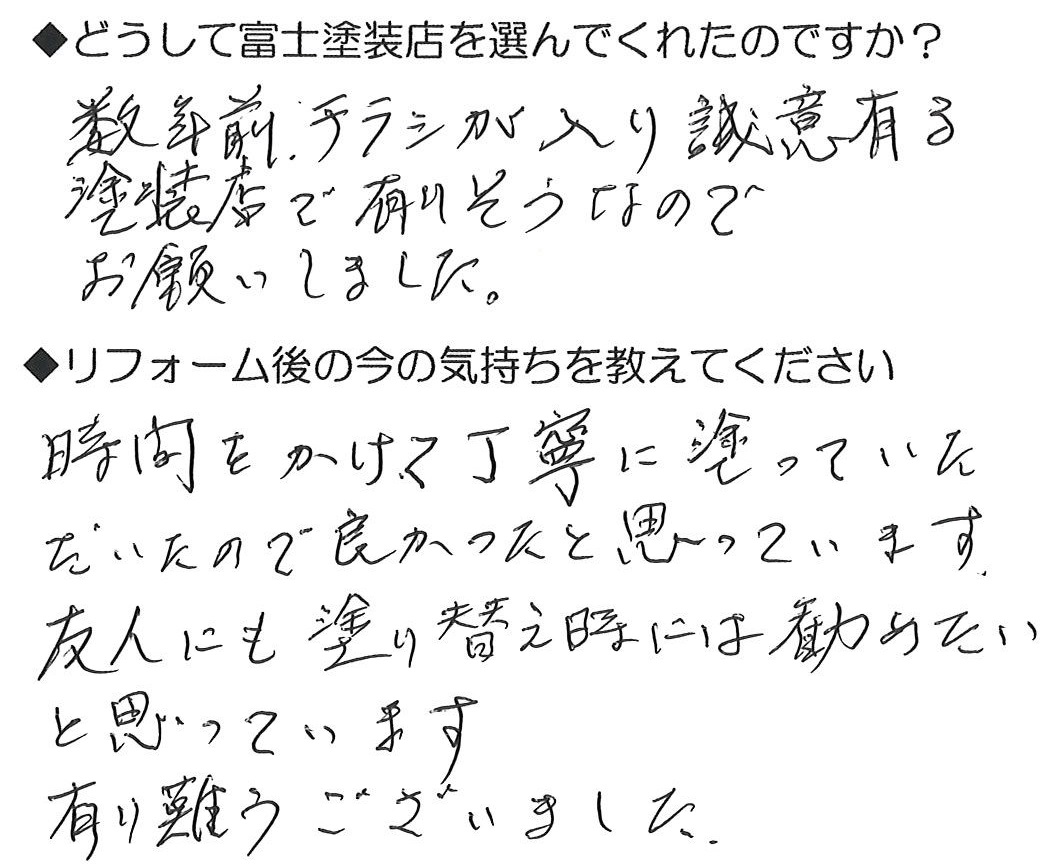 ◆どうして富士塗装店を選んでくれたのですか?
数年前、チラシが入り誠意有る
塗装店で有りそうなので
お願いしました。
◆リフォーム後の今の気持ちを教えてください
時間をかけて丁寧に塗っていた
だいたので良かったと思っています。
友人にも塗り替え時には勧めたい
と思っています
有り難うございました。